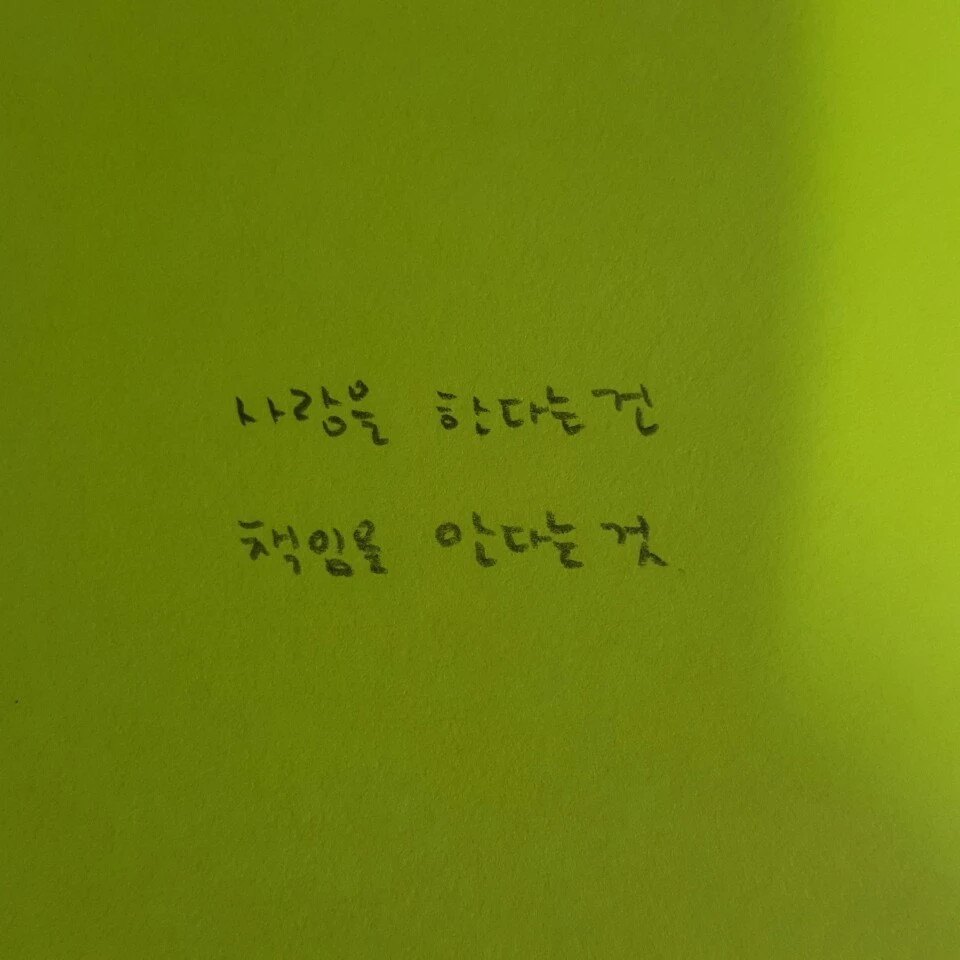 사랑을 한다는 건
책임을 안다는 것